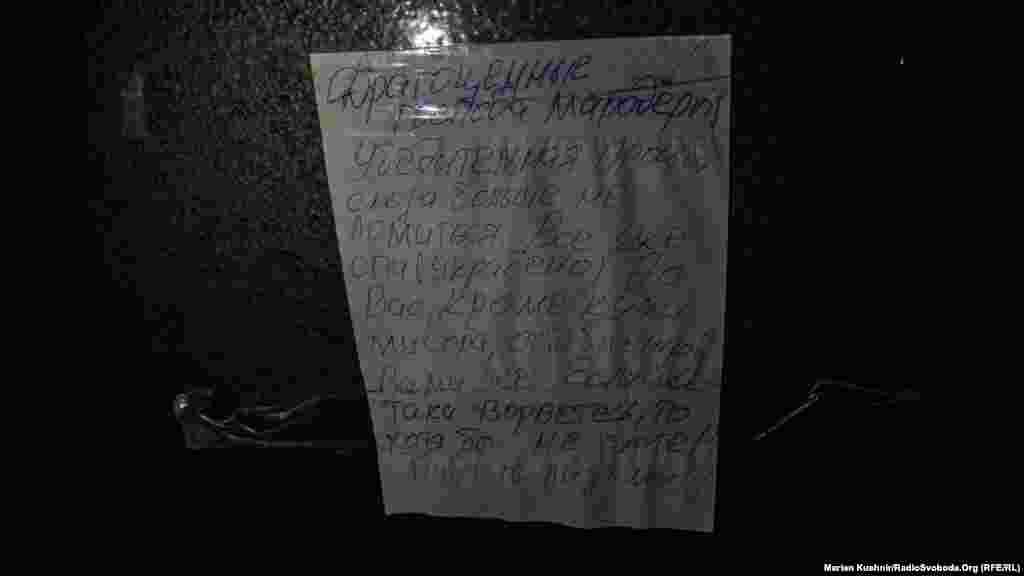 Драгоценные
Господа Мародеры
Убедительная просьба
сюда больше не
ломиться. Все уже
спи(украдено) До
Вас, кроме кучи
мусора, оставленно
Вами же Если вы
таки ворветесь, то
хотя бы не
Marian Kushnir/RadioSvoboda.Org (RFE/RL)